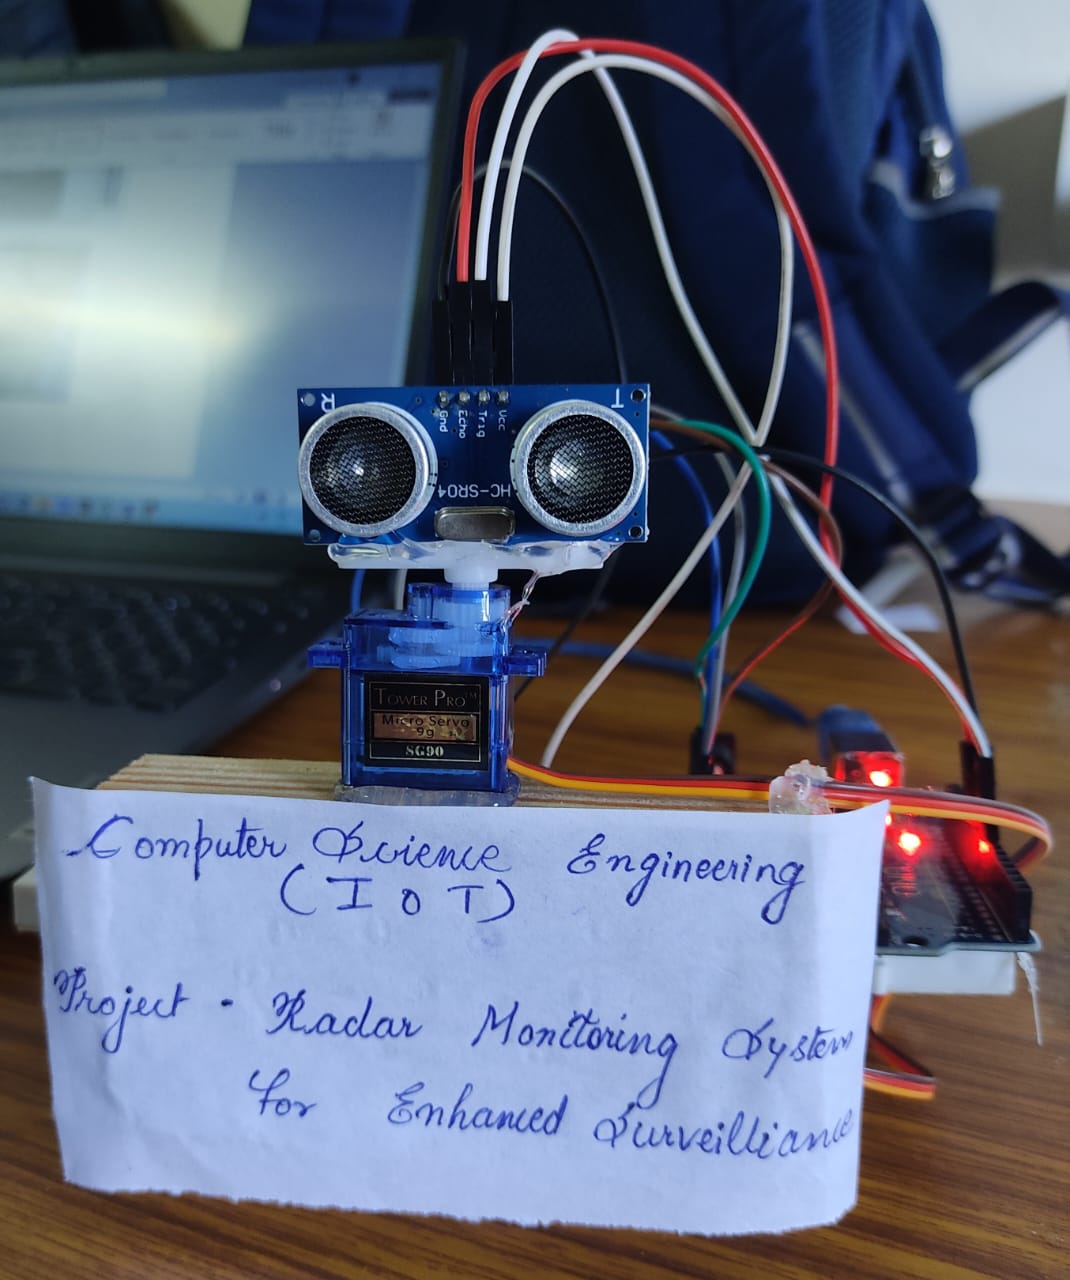 R T
Gnd Echo Trig Vcc
HC-SR04
TOWER PRO™
Micro Servo
9g
SG90
Computer Science Engineering
(IOT)
Project - Radar Monitoring System
for Enhanced Surveilliance